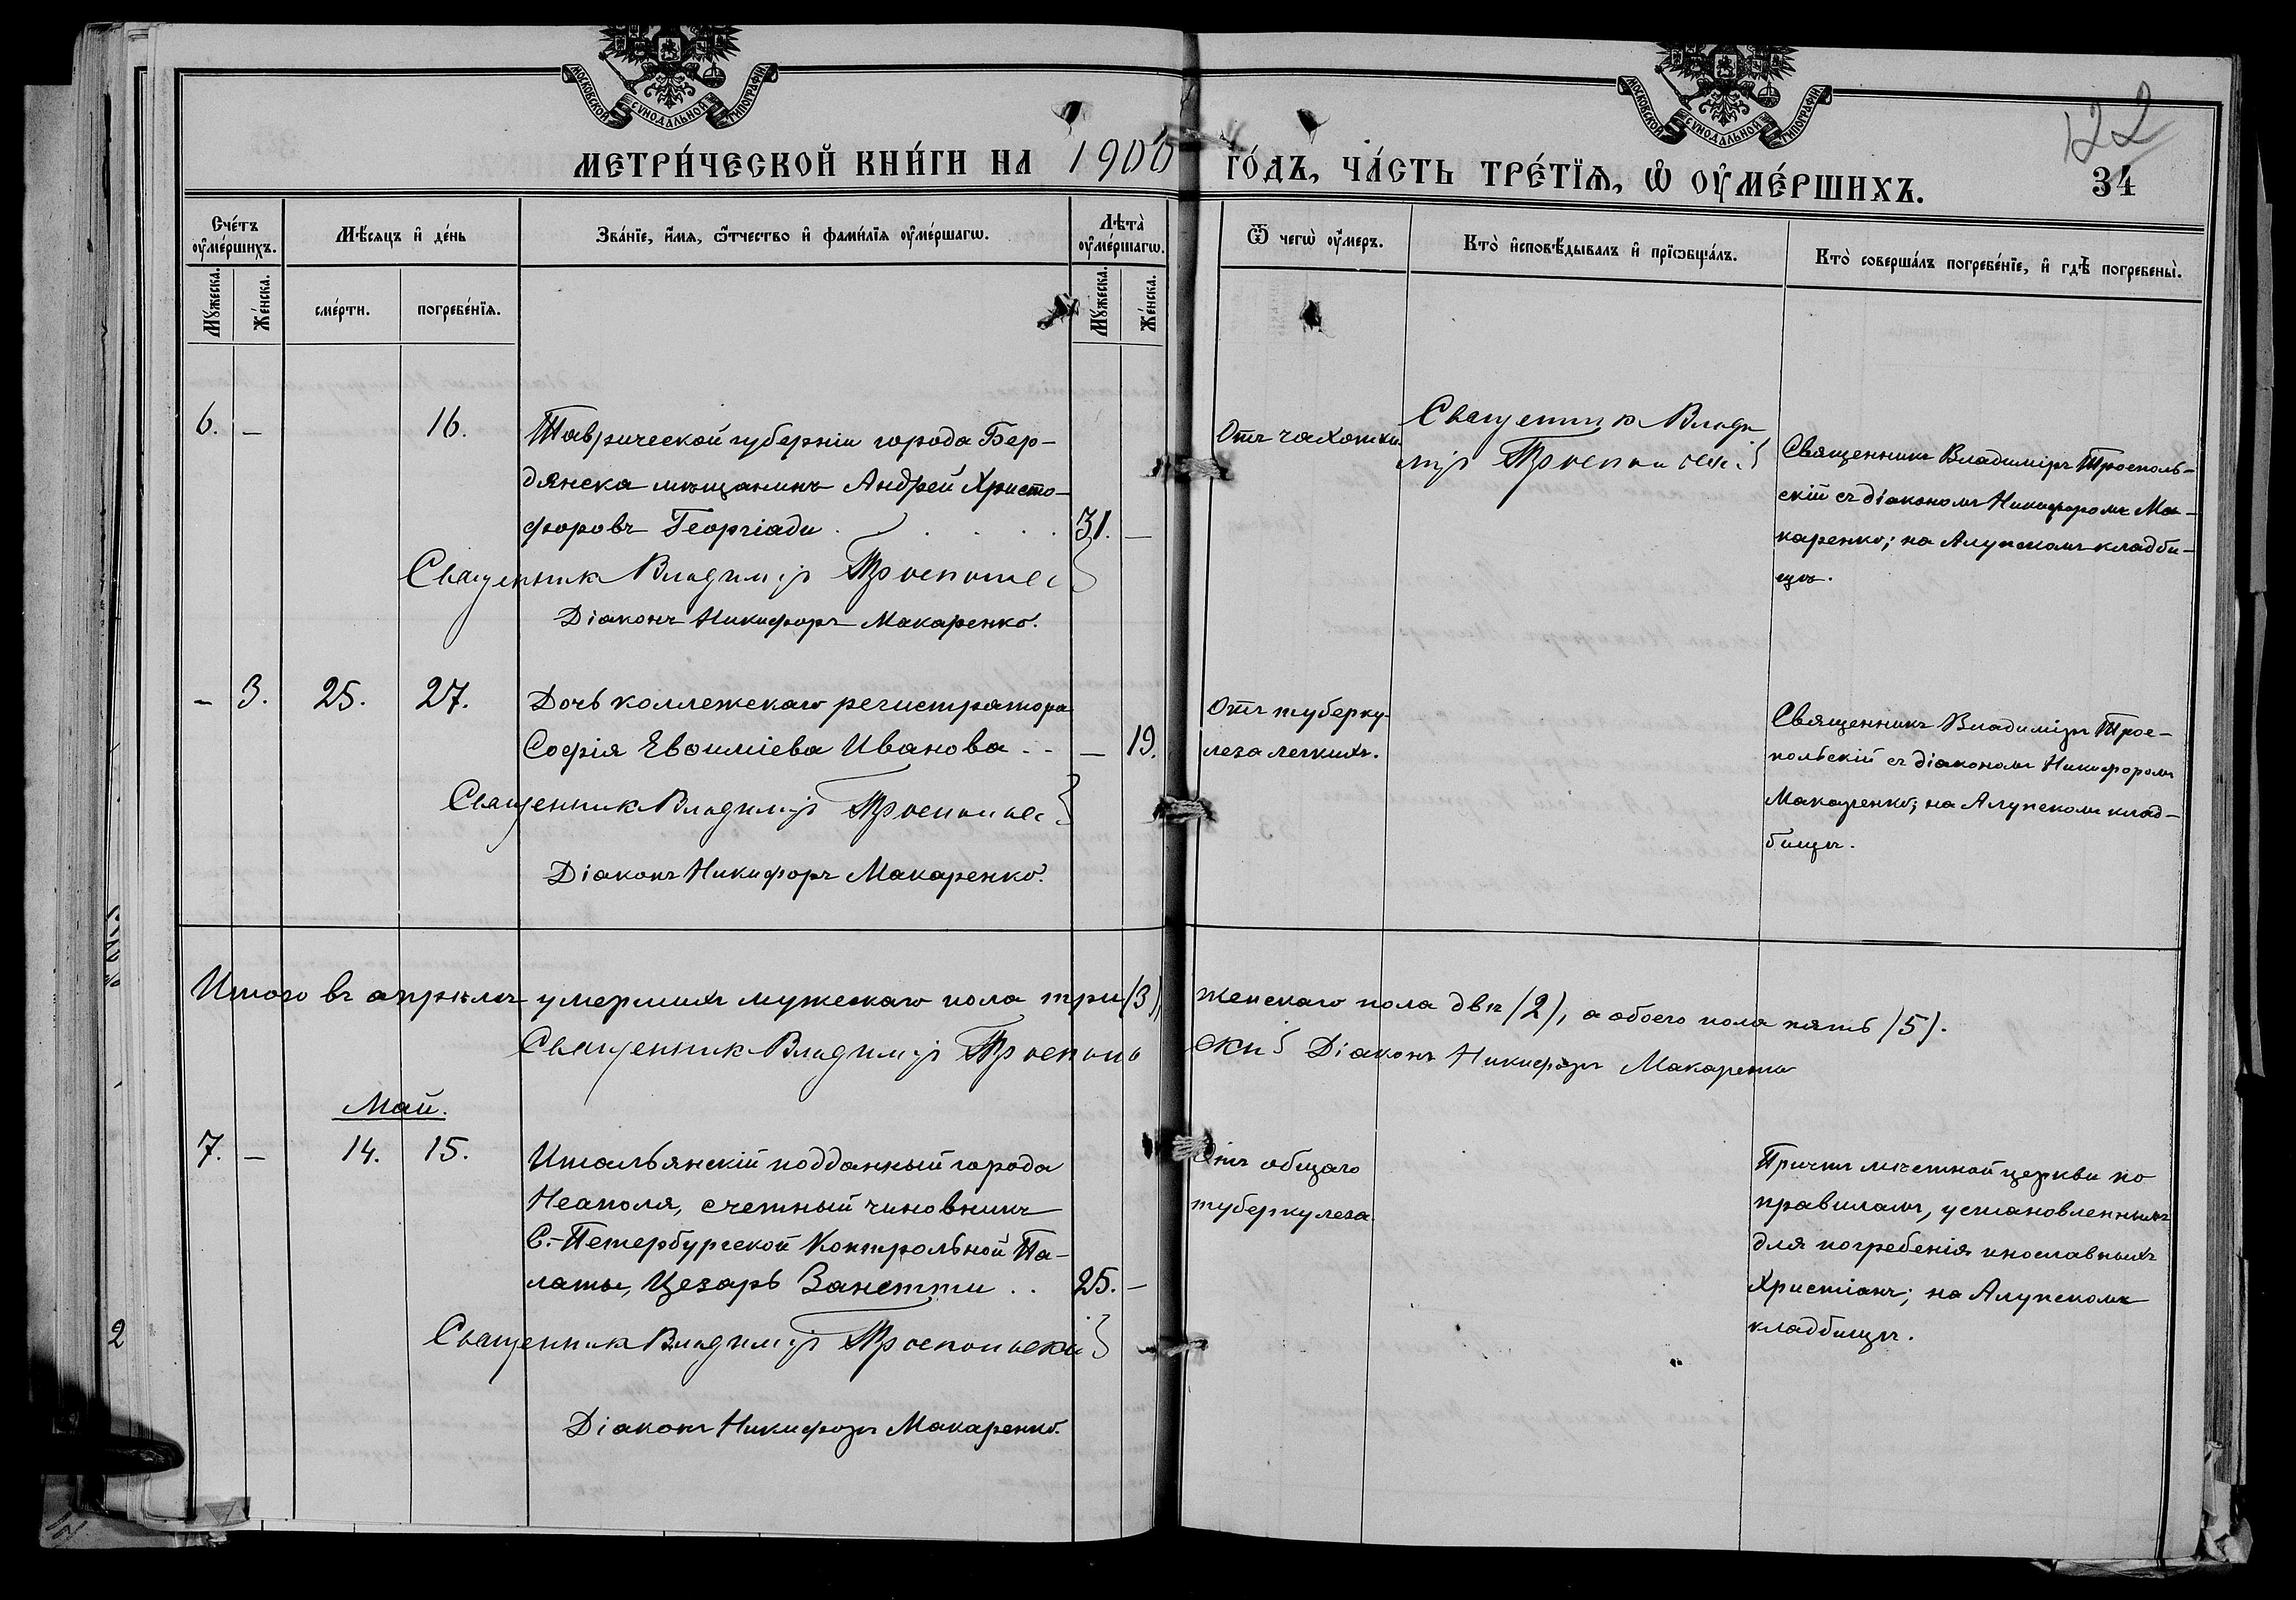 МОСКОВСКОЙ СѴНОДАЛЬНОЙ ТИПОГРАФІИ
МОСКОВСКОЙ СѴНОДАЛЬНОЙ ТИПОГРАФІИ
122
МЕТРИ́ЧЕСКОЙ КНИ́ГИ НА 1900 ГО́ДЪ, ЧА́СТЬ ТРЕ́ТЇѦ, Ѡ҆ ОУ҆МЕ́РШИХЪ.
34
Сче́тъ оу҆ме́ршихъ.
Мѣ́сяцъ и҆ де́нь
Зва́нїе, и҆́мѧ, ѻ҆́тчество и҆ фами́лїѧ оу҆ме́ршагѡ.
Лѣта̀ оу҆ме́ршагѡ.
Ѿ чегѡ̀ оу҆́меръ.
Кто̀ и҆сповѣ́дывалъ и҆ прїѡбща́лъ.
Кто̀ соверша́лъ погребе́нїе, и҆ гдѣ̀ погребены̀.
Мꙋ́жеска.
Же́нска.
сме́рти.
погребе́нїѧ.
Мꙋ́жеска.
Же́нска.
6. — 16.
Таврической губерніи города Бер-
дянска мѣщанинъ Андрей Христо-
форовъ Георгіади . . . . 31. —
Священник Владимір Троепольс
Діаконъ Никифоръ Макаренко.
Отъ чахотки
Священник Влади
мір Троепольскій
Священникъ Владиміръ Троеполь-
скій съ діакономъ Никифоромъ Ма-
каренко; на Алупскомъ кладби-
щѣ.
— 3. 25. 27.
Дочь коллежскаго регистратора
Софія Евѳиміева Иванова . . — 19.
Священник Владимір Троепольс
Діаконъ Никифоръ Макаренко.
Отъ туберку-
леза легкихъ.
Священникъ Владиміръ Трое-
польскій съ діакономъ Никифоромъ
Макаренко; на Алупскомъ клад-
бищѣ.
Итого въ апрѣлѣ умершихъ мужескаго пола три (3), женскаго пола двѣ (2), а обоего пола пять (5).
Священник Владимір Троепольскій Діаконъ Никифоръ Макаренко
Май.
7. — 14. 15.
Итальянскій подданный города
Неаполя, счетный чиновникъ
С.-Петербургской Контрольной Па-
латы, Цезарь Занетти . . 25. —
Священник Владимір Троепольскій
Діаконъ Никифоръ Макаренко.
Отъ общаго
туберкулеза.
Причтъ мѣстной церкви по
правиламъ, установленнымъ
для погребенія инославныхъ
Христіанъ; на Алупскомъ
кладбищѣ.
2